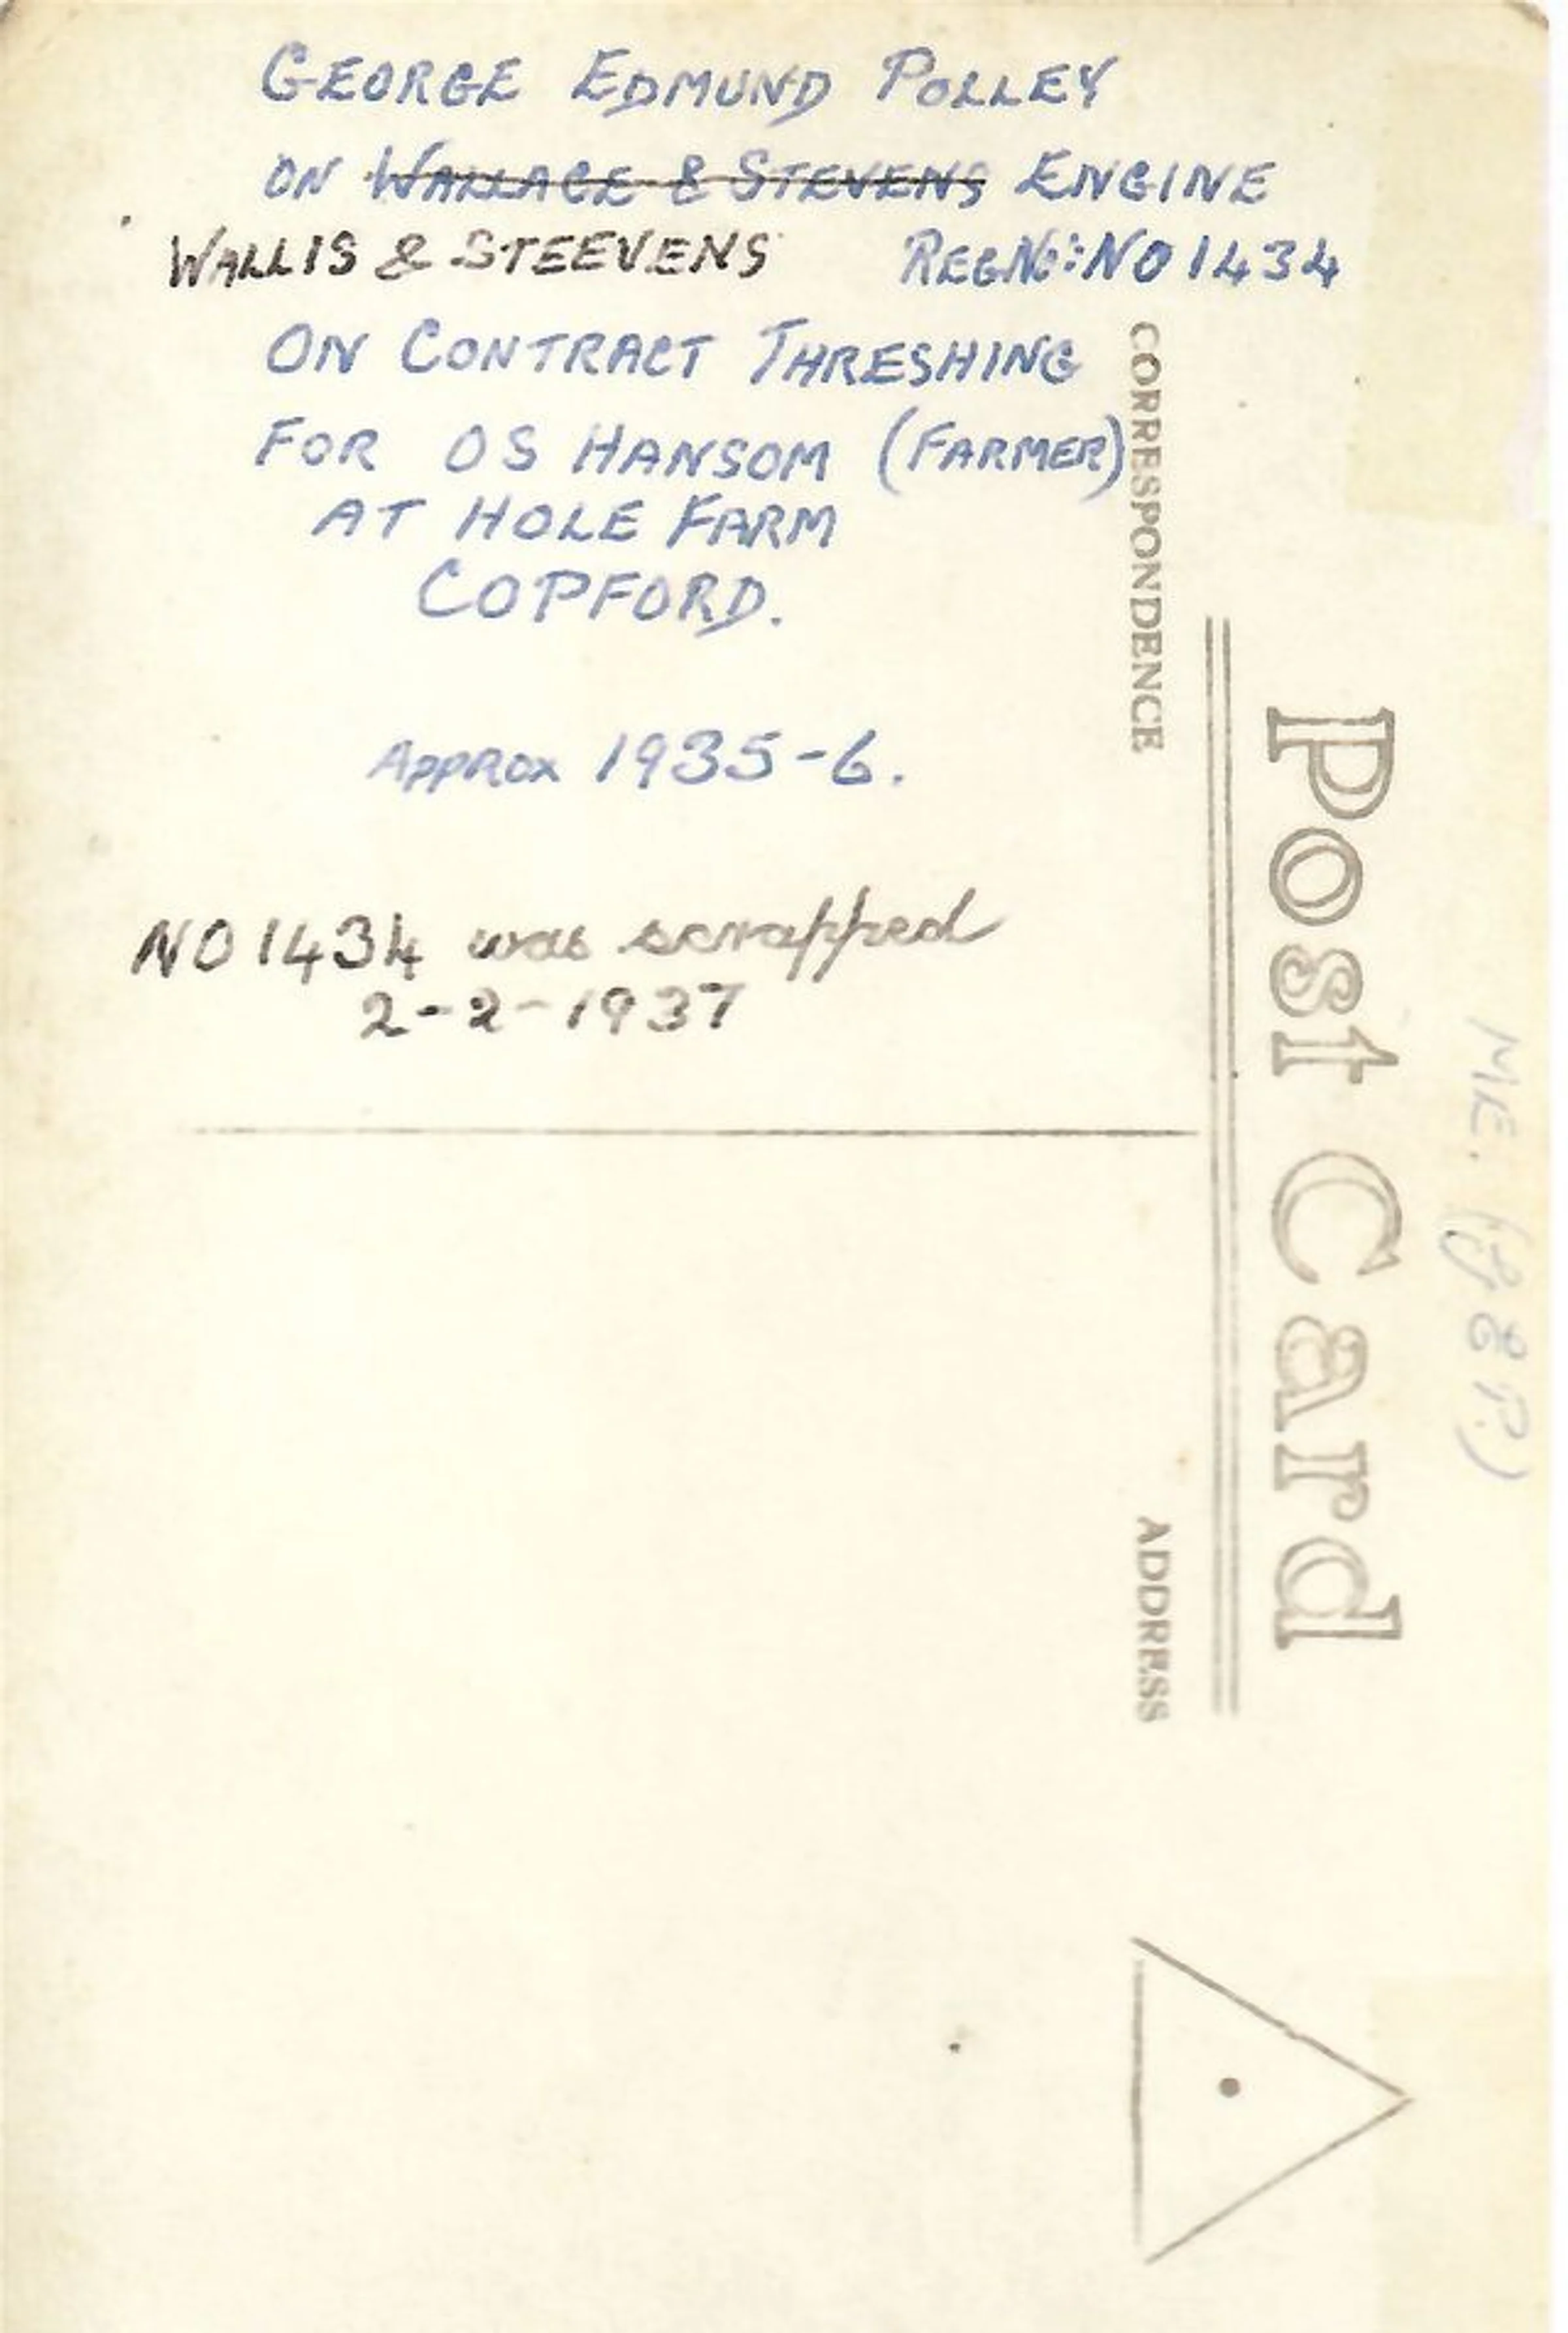 GEORGE EDMUND POLLEY
ON WALLACE & STEVENS ENGINE
WALLIS & STEEVENS REG No: NO 1434
ON CONTRACT THRESHING
FOR OS HANSOM (FARMER)
AT HOLE FARM
COPFORD.
APPROX 1935-6.
NO 1434 was scrapped
2-2-1937
CORRESPONDENCE
Post Card
ADDRESS
ME.